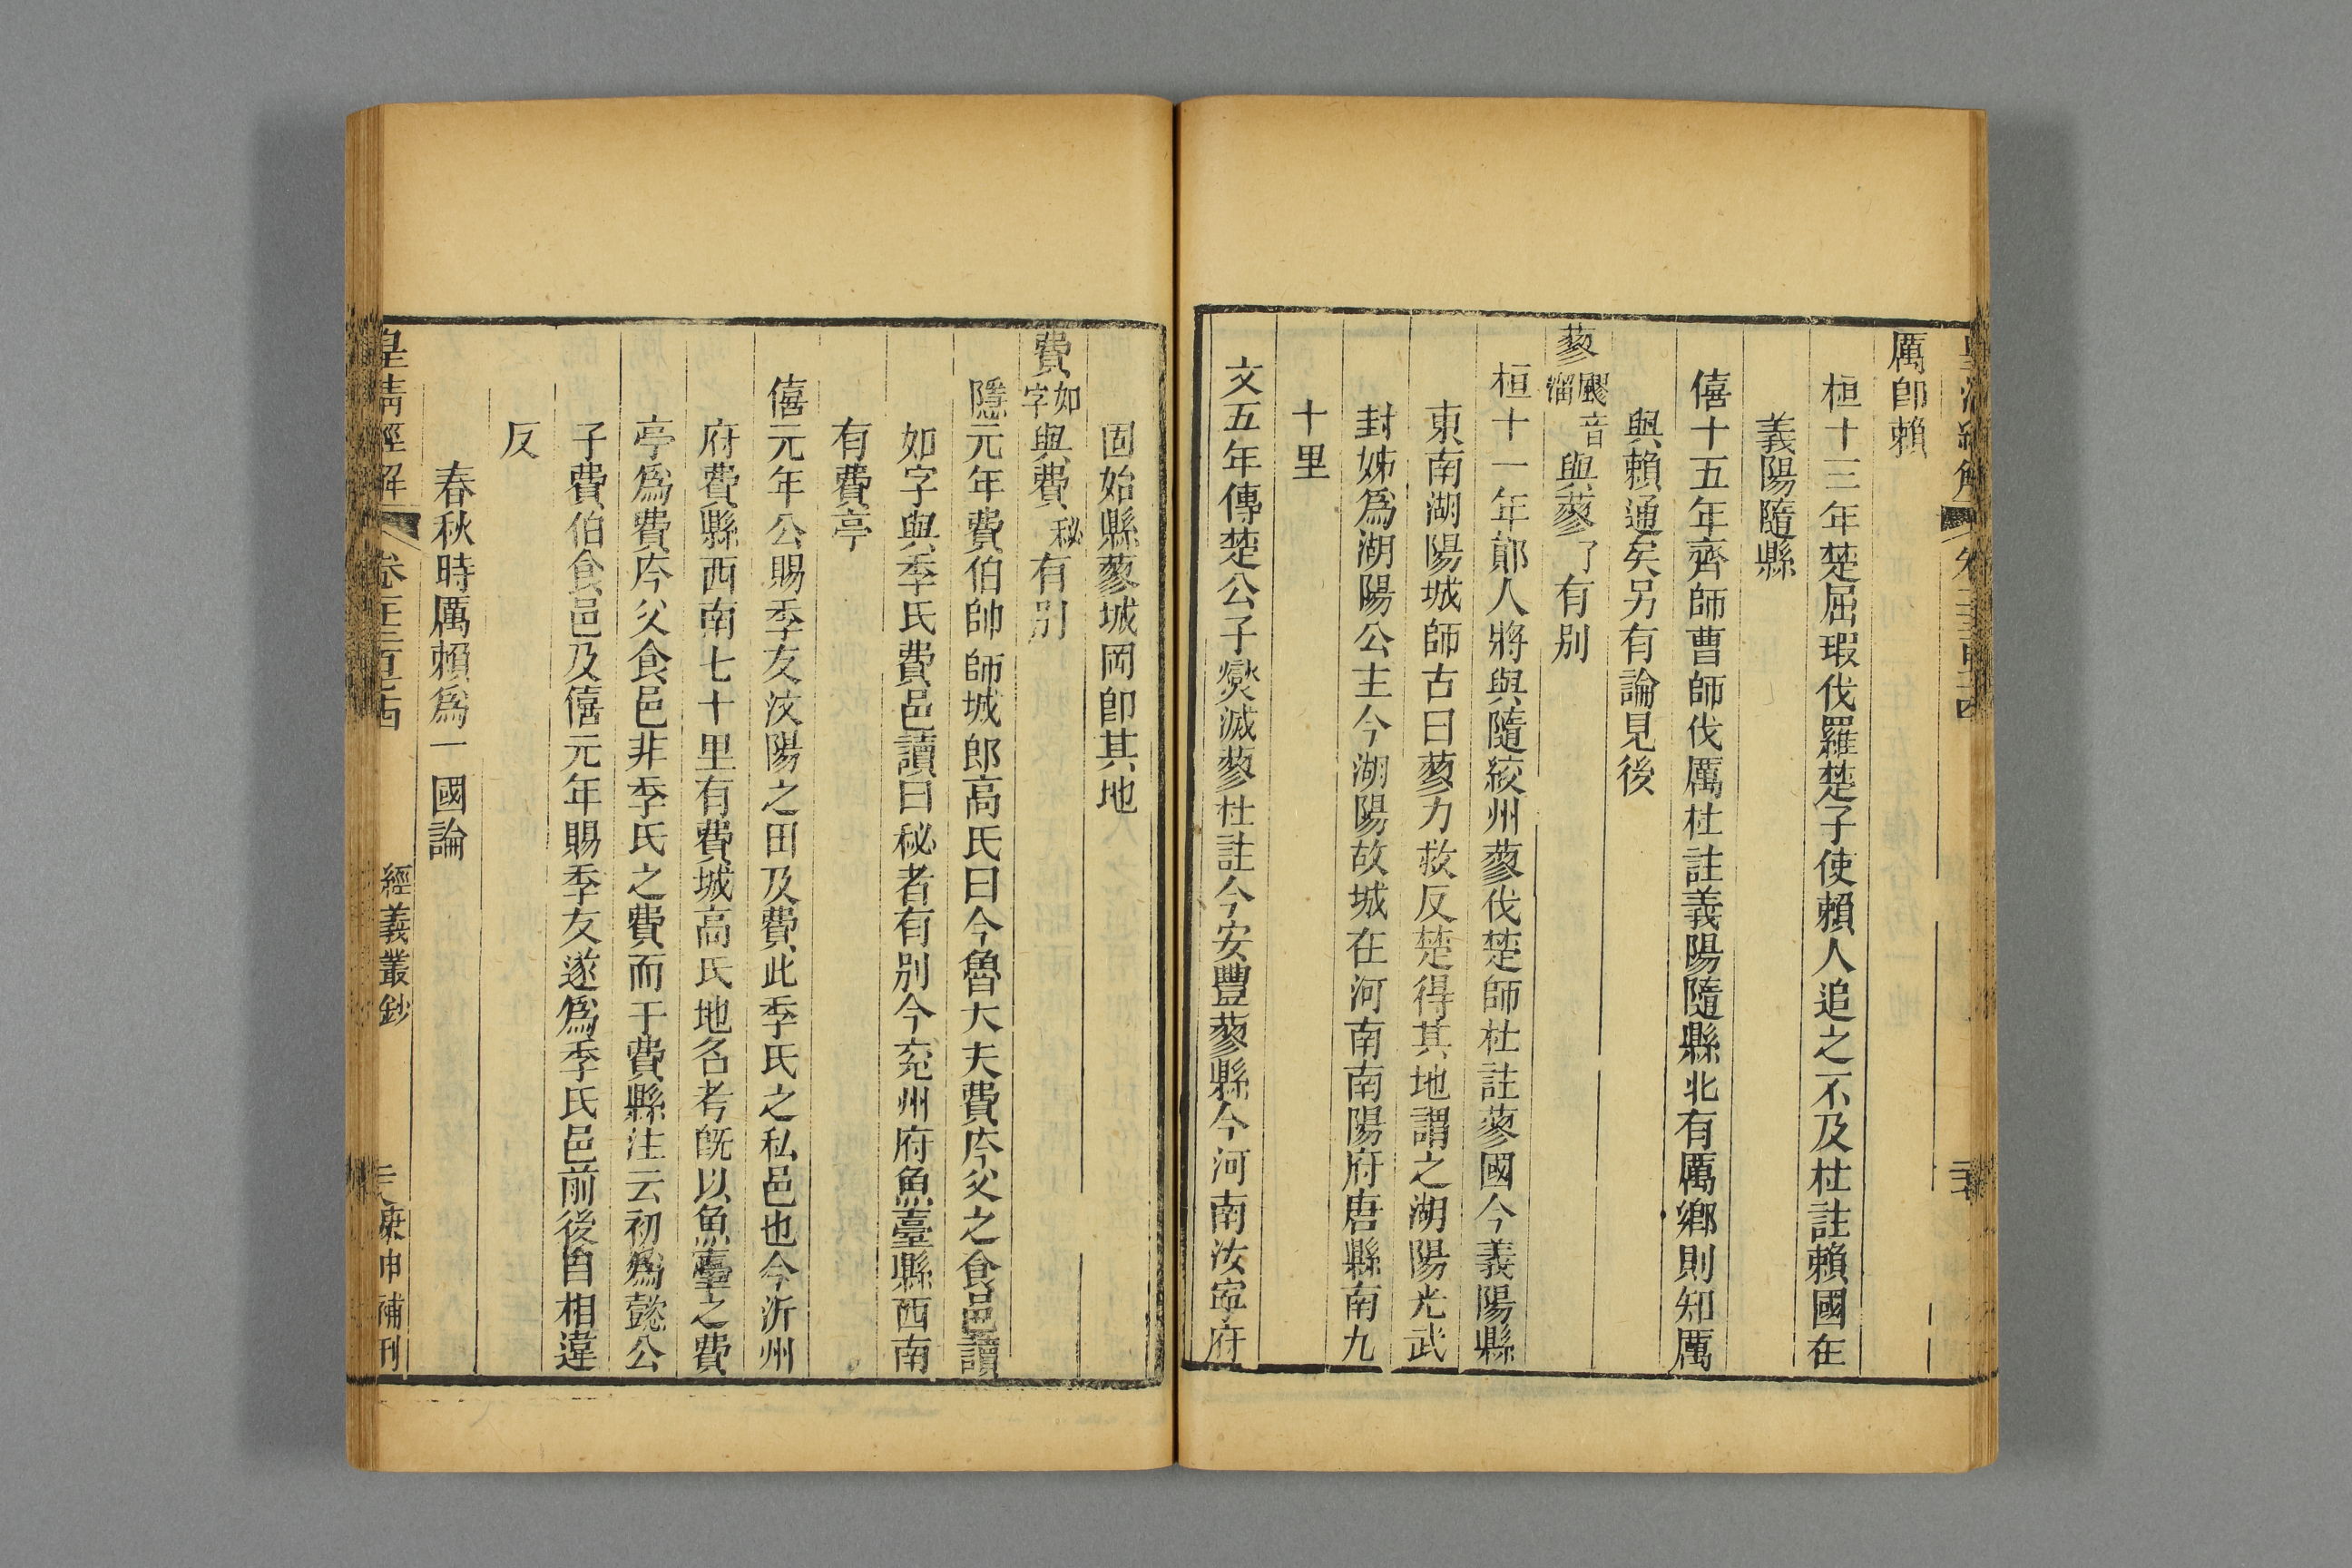 厲卽賴
桓十三年楚屈瑕伐羅楚子使賴人追之不及杜註賴國在
義陽隨縣
僖十五年齊師曹師伐厲杜註義陽隨縣北有厲鄉則知厲
與賴通矣另有論見後
蓼飂音溜與蓼了有別
桓十一年鄖人將與隨絞州蓼伐楚師杜註蓼國今義陽縣
東南湖陽城師古曰蓼力救反楚得其地謂之湖陽光武
封姊爲湖陽公主今湖陽故城在河南南陽府唐縣南九
十里
文五年傳楚公子燮滅蓼杜註今安豐蓼縣今河南汝寧府
固始縣蓼城岡卽其地
費如字與費秘有別
隱元年費伯帥師城郎高氏曰今魯大夫費庈父之食邑讀
如字與季氏費邑讀曰秘者有別今兖州府魚臺縣西南
有費亭
僖元年公賜季友汶陽之田及費此季氏之私邑也今沂州
府費縣西南七十里有費城高氏地名考旣以魚臺之費
亭爲費庈父食邑非季氏之費而于費縣注云初爲懿公
子費伯食邑及僖元年賜季友遂爲季氏邑前後自相違
反
春秋時厲賴爲一國論
皇清經解 經義叢鈔 庚申補刊